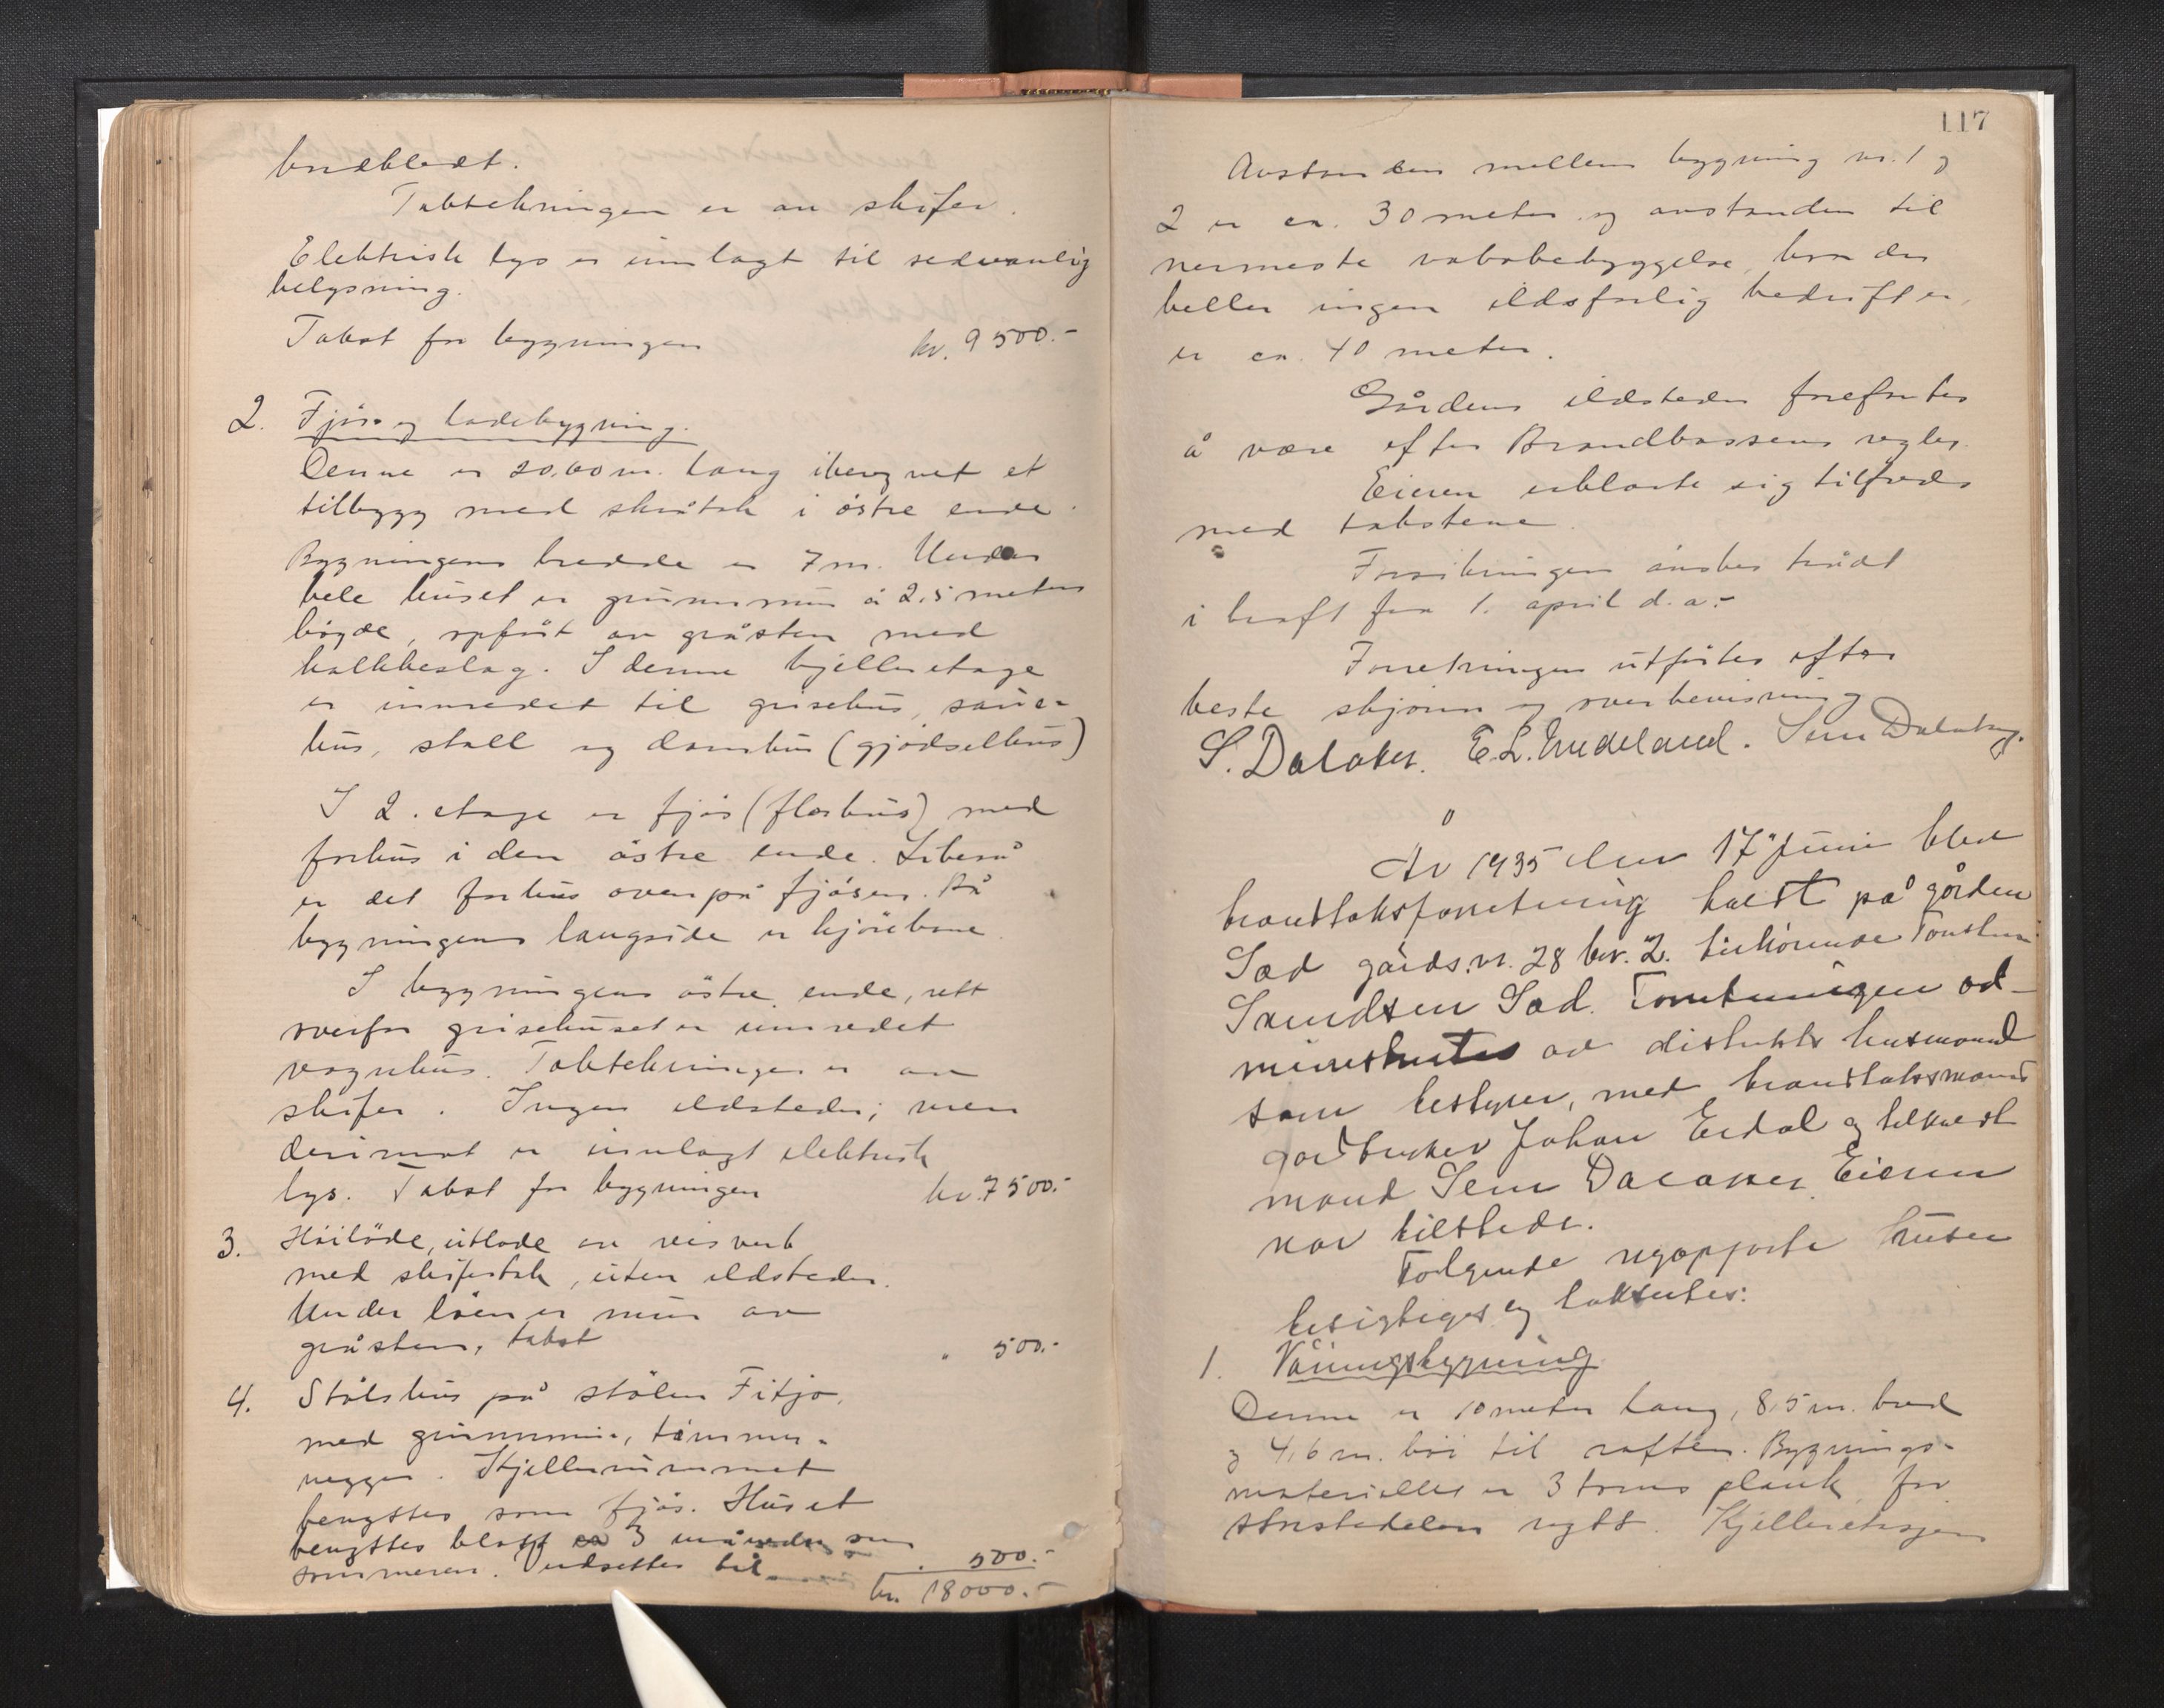 bredbledt.
Taktekningen er av skifer.
Elektrisk lys er innlagt til sedvanlig
belysning.
Takst for bygningen kr. 9500.-
2. Fjös og ladebygning.
Denne er 20,00 m. lang iberegnet et
tilbygg med skråtak i östre ende.
Bygningens bredde er 7 m. Under
hele huset er grunnmur à 2,5 meters
höyde, opført av gråsten med
kalkbeslag. I denne kjelleretage
er innredet til grisehus, saue-
hus, stall og domhus (gjödselhus)
I 2. etage er fjös (flórhus) med
forhus i den östre ende. Likeså
er det forhus ovenpå fjösen. På
bygningens langside er kjörebrue.
I bygningens östre ende, rett
overfor grisehuset er innredet
vognhus. Taktekningen er av
skifer. Ingen ildsteder; men
derimot er innlagt elektrisk
lys. Takst for bygningen kr. 7500.-
3. Höilöde, utlöde av reisverk
med skifertak, uten ildsteder.
Under löen er mur av
gråsten, takst " 500.-
4. Stölshus på stölen Fitjo,
med grunnmur, tömmer-
vegger. Kjellerrummet
benyttes som fjös. Huset
benyttes blott ca 3 måneder om
sommeren. Verdsettes til " 500.-
kr. 18000.-
117
Avstanden mellem bygning nr. 1 og
2 er ca. 30 meter og avstanden til
nermeste nabobebyggelse, hvor der
heller ingen ildsfarlig bedrift er,
er ca. 40 meter.
Gårdens ildsteder forefantes
å være efter Brandkassens regler.
Eieren erklærte sig tilfreds
med takstene.
Forsikringen önskes trådt
i kraft fra 1. april d.a.-
Forretningen utførtes efter
beste skjönn og overbevisning
S. Dalaker. E. L. Sem Dalaker.
År 1935 den 17 Juni blev
brandtaksforretning holdt på gården
Sæd gårds.nr. 28 br.nr. 2. tilhörende
Sæd. Forretningen ad-
ministertes av distrikts lensmannd
som bestyrer, med brandtaksmand
gardbruker Johan Erdal og tilkaldt
mand Sem Dalaker. Eieren
var tilstede.
Folgende nyopforte huser
besigtiges og taksertes:
1. Våningsbygning
Denne er 10 meter lang, 8,5 m. bred
og 4,6 m. höi til raften. Bygnings-
materialet er 3 toms plank, for
störstedelen nytt. Kjelleretagen